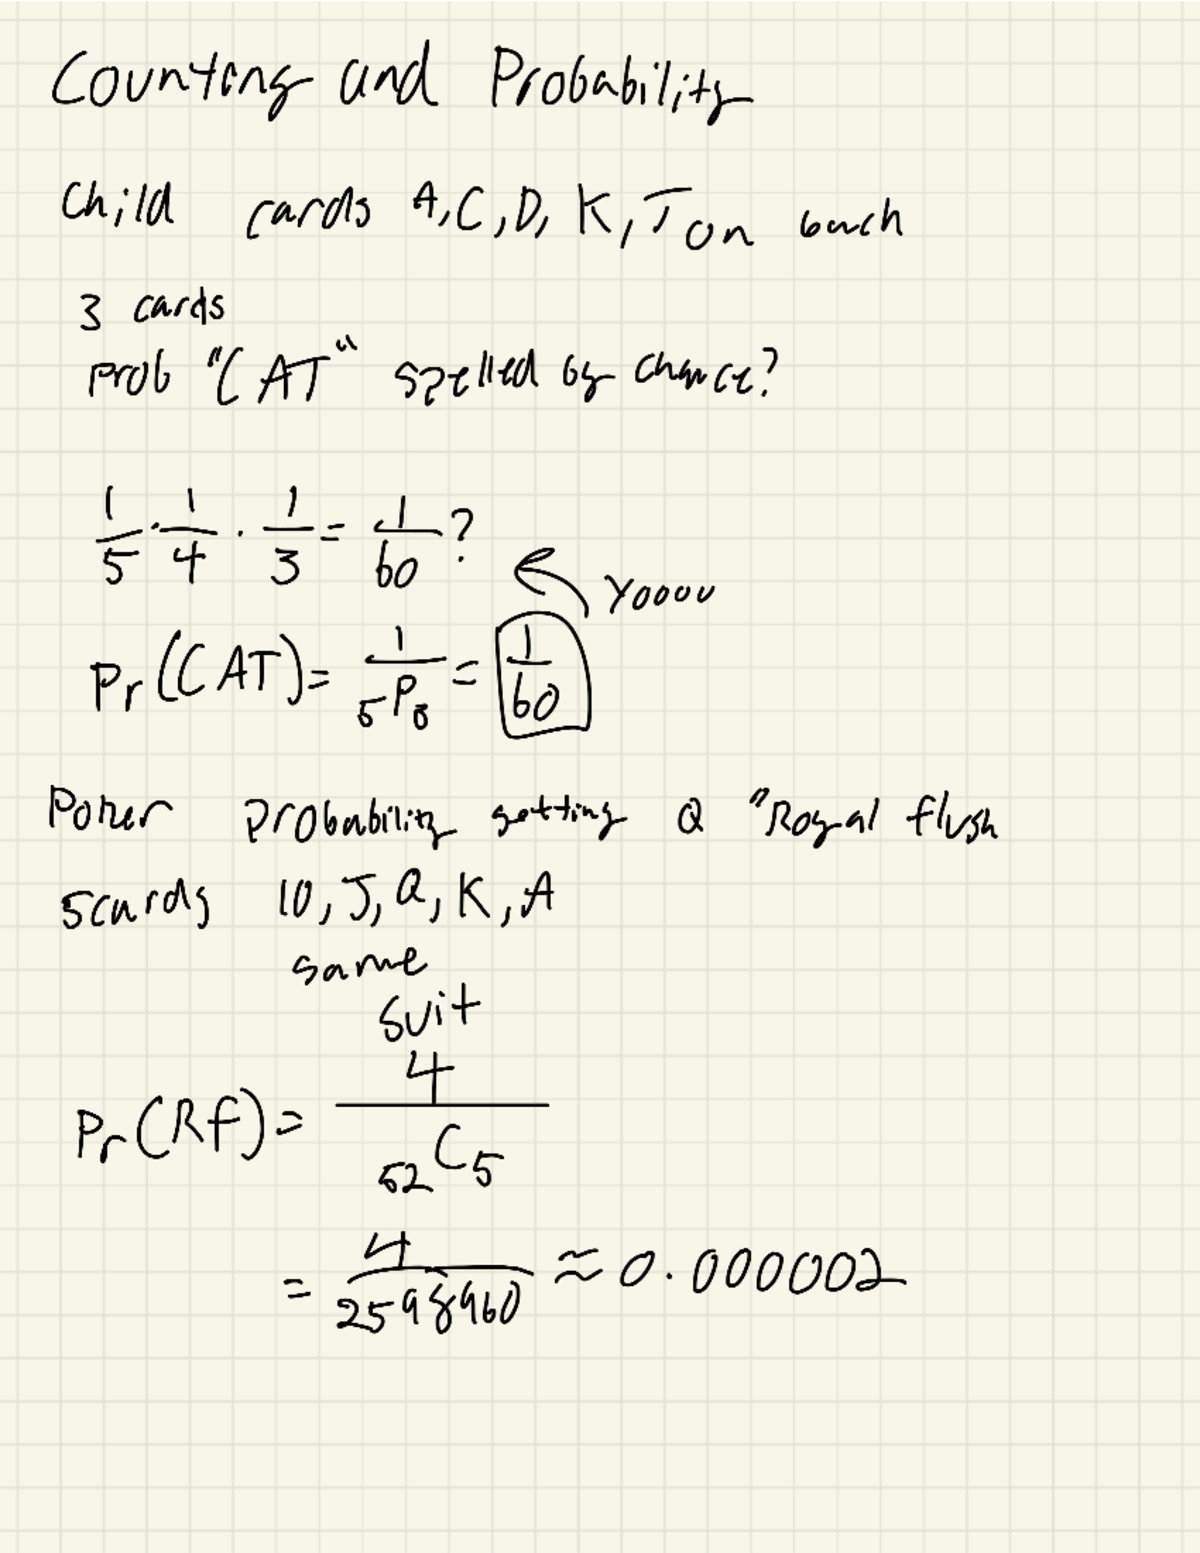 Counting and Probability
Child cards A, C, D, K, T on each
3 cards
prob "CAT" spelled by chance?
1/5 · 1/4 · 1/3 = 1/60 ?
Yoooo
Pr(CAT) = 1/5P3 = 1/60
Poker probability getting a "Royal flush
5 cards 10, J, Q, K, A
same
suit
Pr(RF) = 4/52C5
= 4/2598960 ≈ 0.000002